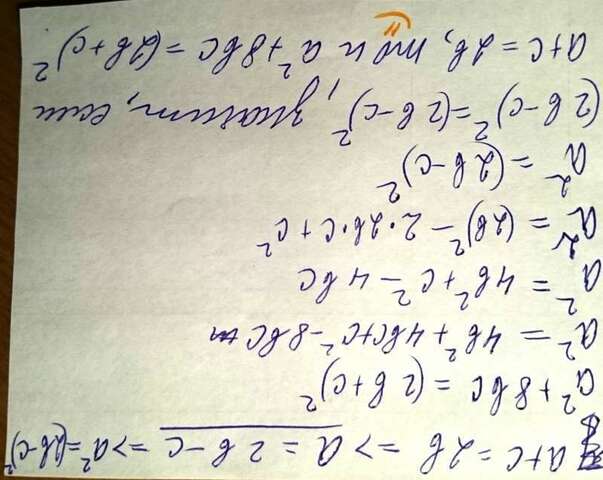 a+c = 2b => a = 2b-c => a²=(2b-c)²
a²+8bc = (2b+c)²
a² = 4b²+4bc+c²-8bc
a² = 4b²+c²-4bc
a² = (2b)²-2·2b·c+c²
a² = (2b-c)²
(2b-c)²=(2b-c)², значит, если
a+c=2b, то и a²+8bc=(2b+c)²